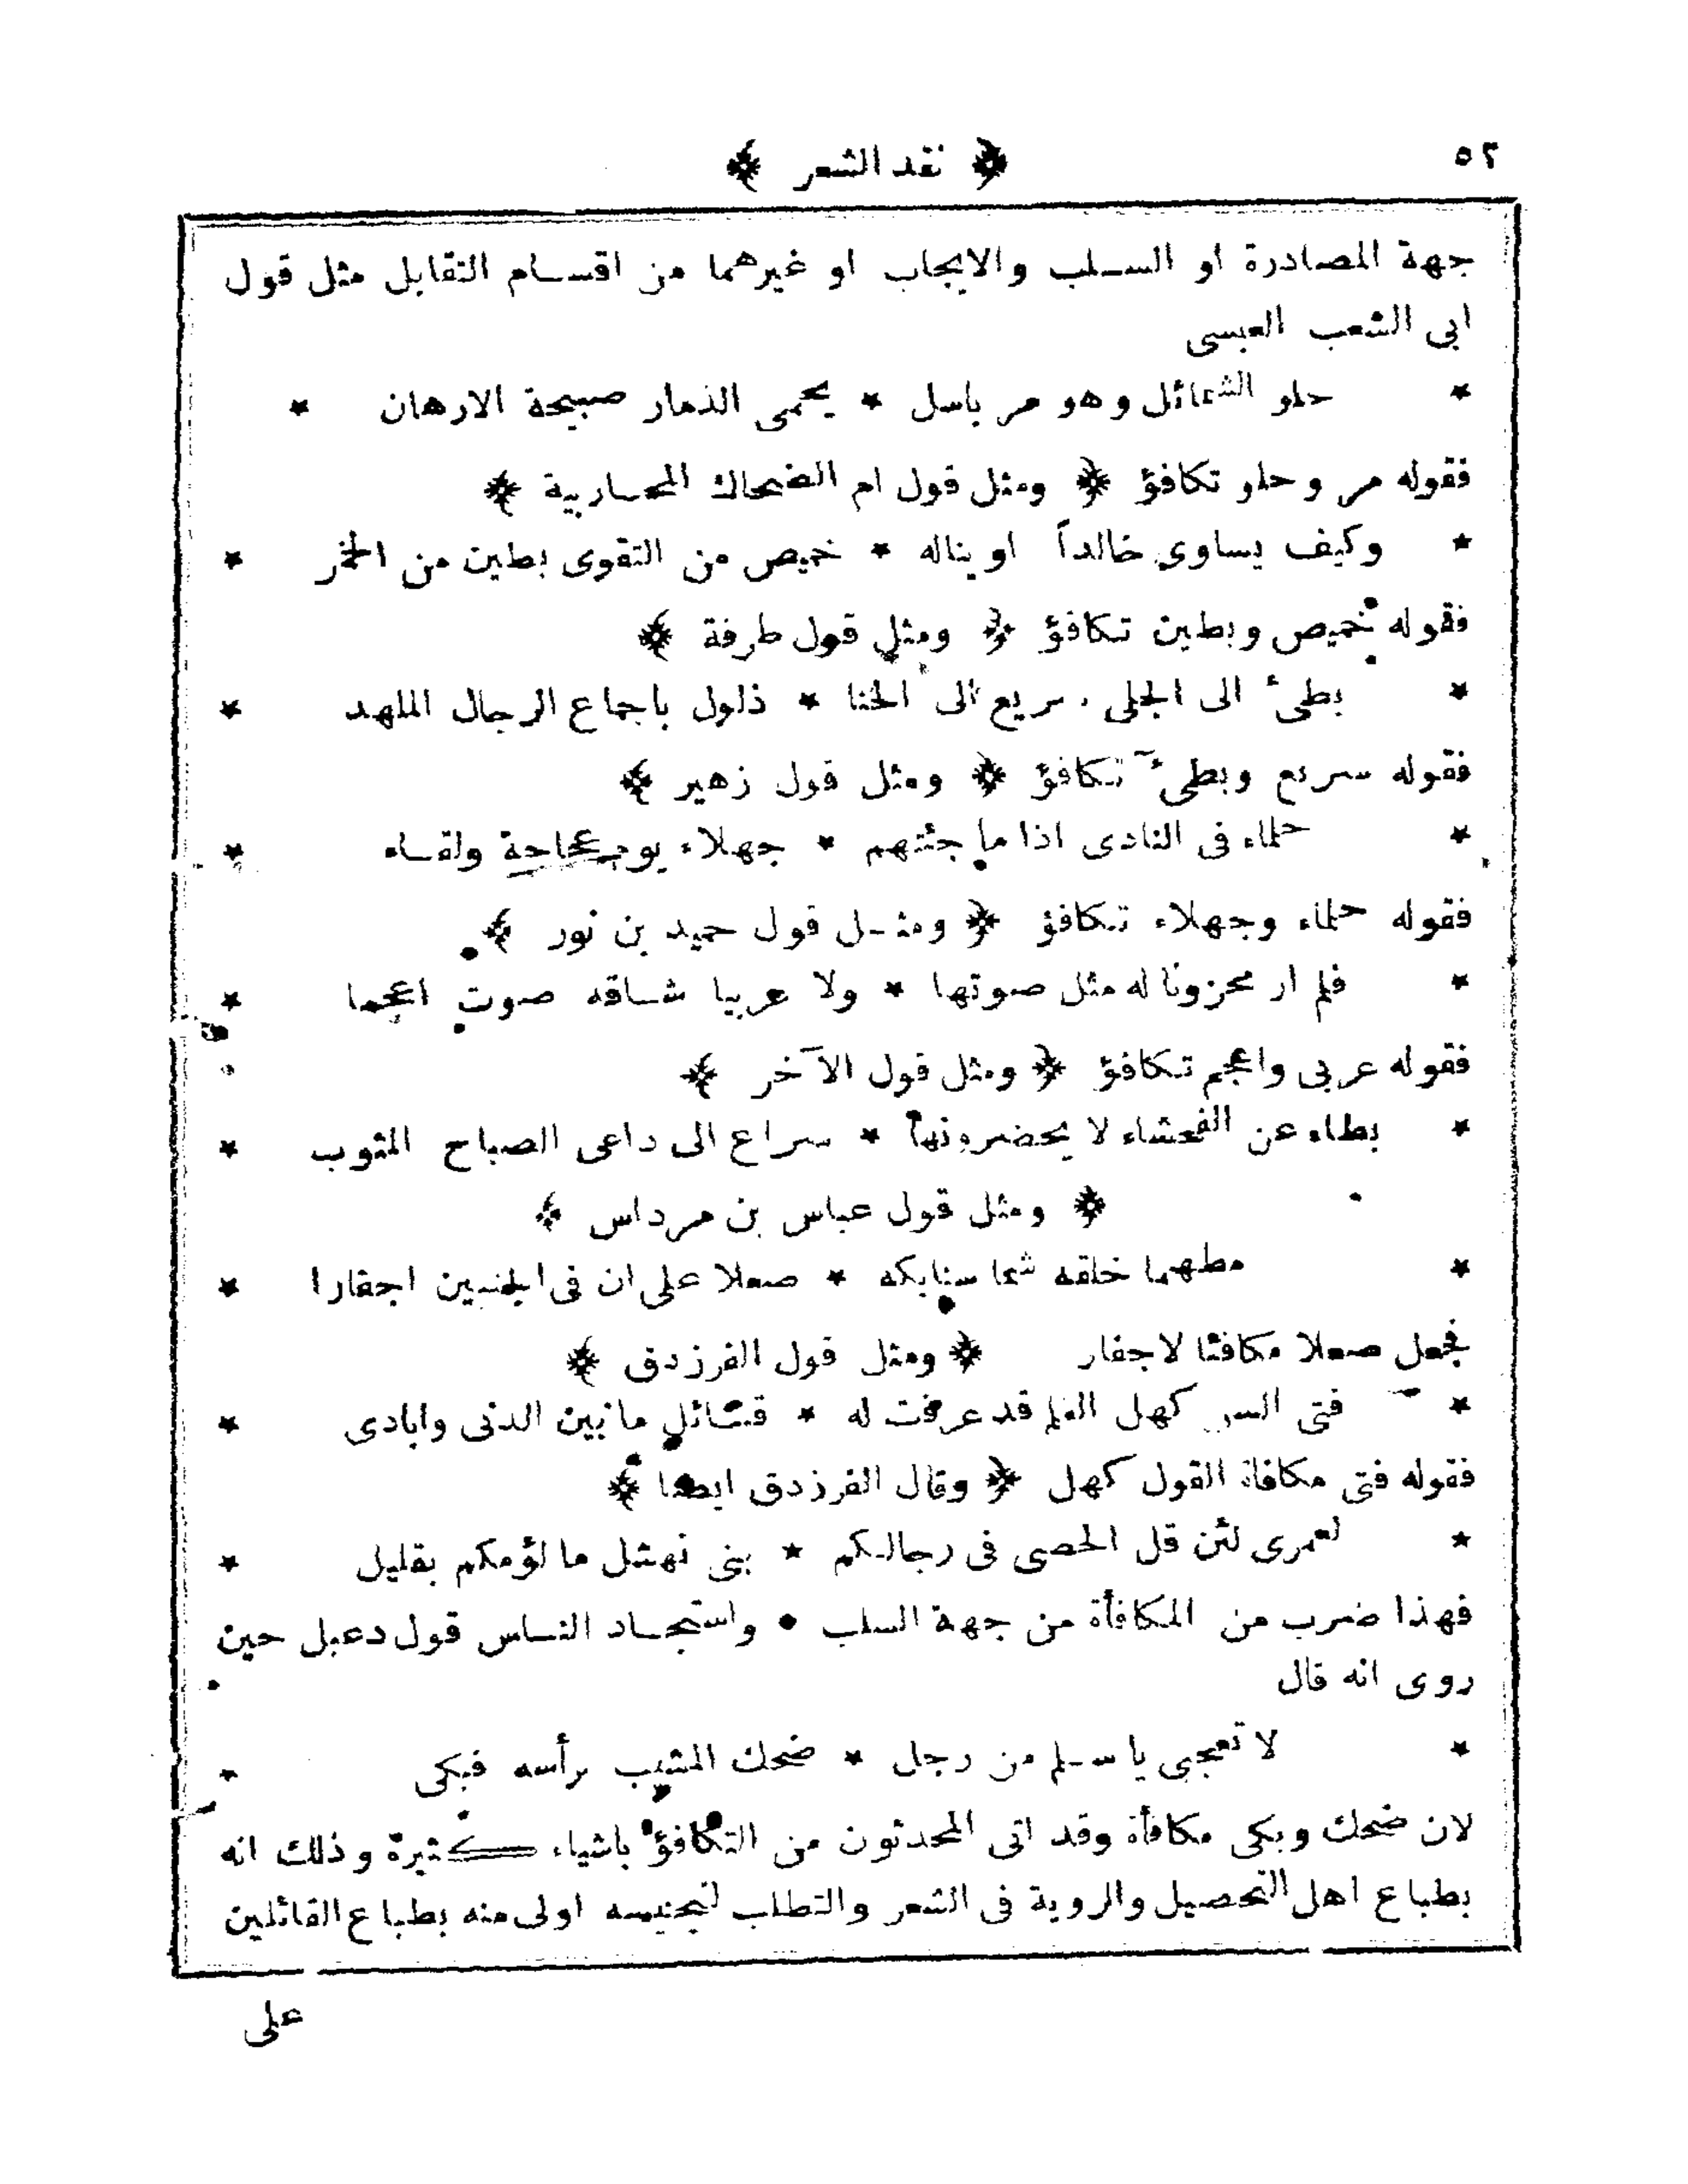 ٥٢
﴿ نقد الشعر ﴾
جهة المصادرة او السلب والايجاب او غيرهما من اقسام التقابل مثل قول
ابى الشعب العبسى
* حلو الشمائل وهو مر باسل * يحمى الذمار صبيحة الارهان *
فقوله مر وحلو تكافؤ ﴿ ومثل قول ام الضحاك المحاربية ﴾
* وكيف يساوى خالداً او يناله * خميص من التقوى بطين من الخمر *
فقوله خميص وبطين تكافؤ ﴿ ومثل قول طرفة ﴾
* بطىء الى الجلى سريع الى الخنا * ذلول باجماع الرجال الملهد *
فقوله سريع وبطىء تكافؤ ﴿ ومثل قول زهير ﴾
* حلماء فى النادى اذا ما جئتهم * جهلاء يوم عجاجة ولقاء *
فقوله حلماء وجهلاء تكافؤ ﴿ ومثل قول حميد بن نور ﴾
* فلم ار محزونا له مثل صوتها * ولا عربيا شاقه صوت اعجما *
فقوله عربى واعجم تكافؤ ﴿ ومثل قول الآخر ﴾
* بطاء عن الفحشاء لا يحضرونها * سراع الى داعى الصباح المثوب *
﴿ ومثل قول عباس بن مرداس ﴾
* مطهما خلقه شما سنابكه * صعلا على ان فى الجنبين اجفارا *
فجعل صعلا مكافئا لاجفار ﴿ ومثل قول الفرزدق ﴾
* فتى السن كهل العلم قد عرفت له * قبائل ما بين الدنى وايادى *
فقوله فتى مكافاة القول كهل ﴿ وقال الفرزدق ايضا ﴾
* لعمرى لئن قل الحصى فى رجالكم * بنى نهشل ما لؤمكم بقليل *
فهذا ضرب من المكافأة من جهة السلب • واستجاد الناس قول دعبل حين
روى انه قال
* لا تعجبى يا سلم من رجل * ضحك المشيب برأسه فبكى *
لان ضحك وبكى مكافأة وقد اتى المحدثون من التكافؤ باشياء كثيرة وذلك انه
بطباع اهل التحصيل والروية فى الشعر والتطلب لتجنيسه اولى منه بطباع القائلين
على